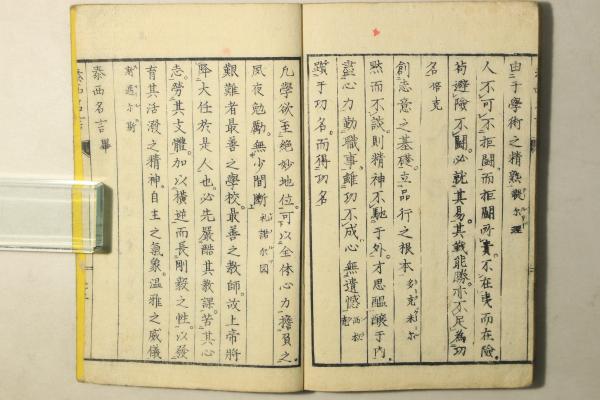 由于學術之精熟
人不可不拒鬪而拒鬪所貴不在夷而在險
苟避險不鬪必就其易其戰能勝亦不足為功
名
創志意之基礎立品行之根本
然而不談則精神不馳于外才思醞釀于內
盡心力勤職事雖功不成心無遺憾
躓于功名而得功名
凡學欲至絶妙地位可以全体心力擔負之
夙夜勉勵無少間斷
艱難者最善之學校最善之教師故上帝將
降大任於是人也必先嚴酷其教課苦其心
志勞其支體加以橫逆而長剛毅之性以發
育其活潑之精神自主之氣象溫雅之威儀
斯邁尔斯
泰西名言畢
泰西名言